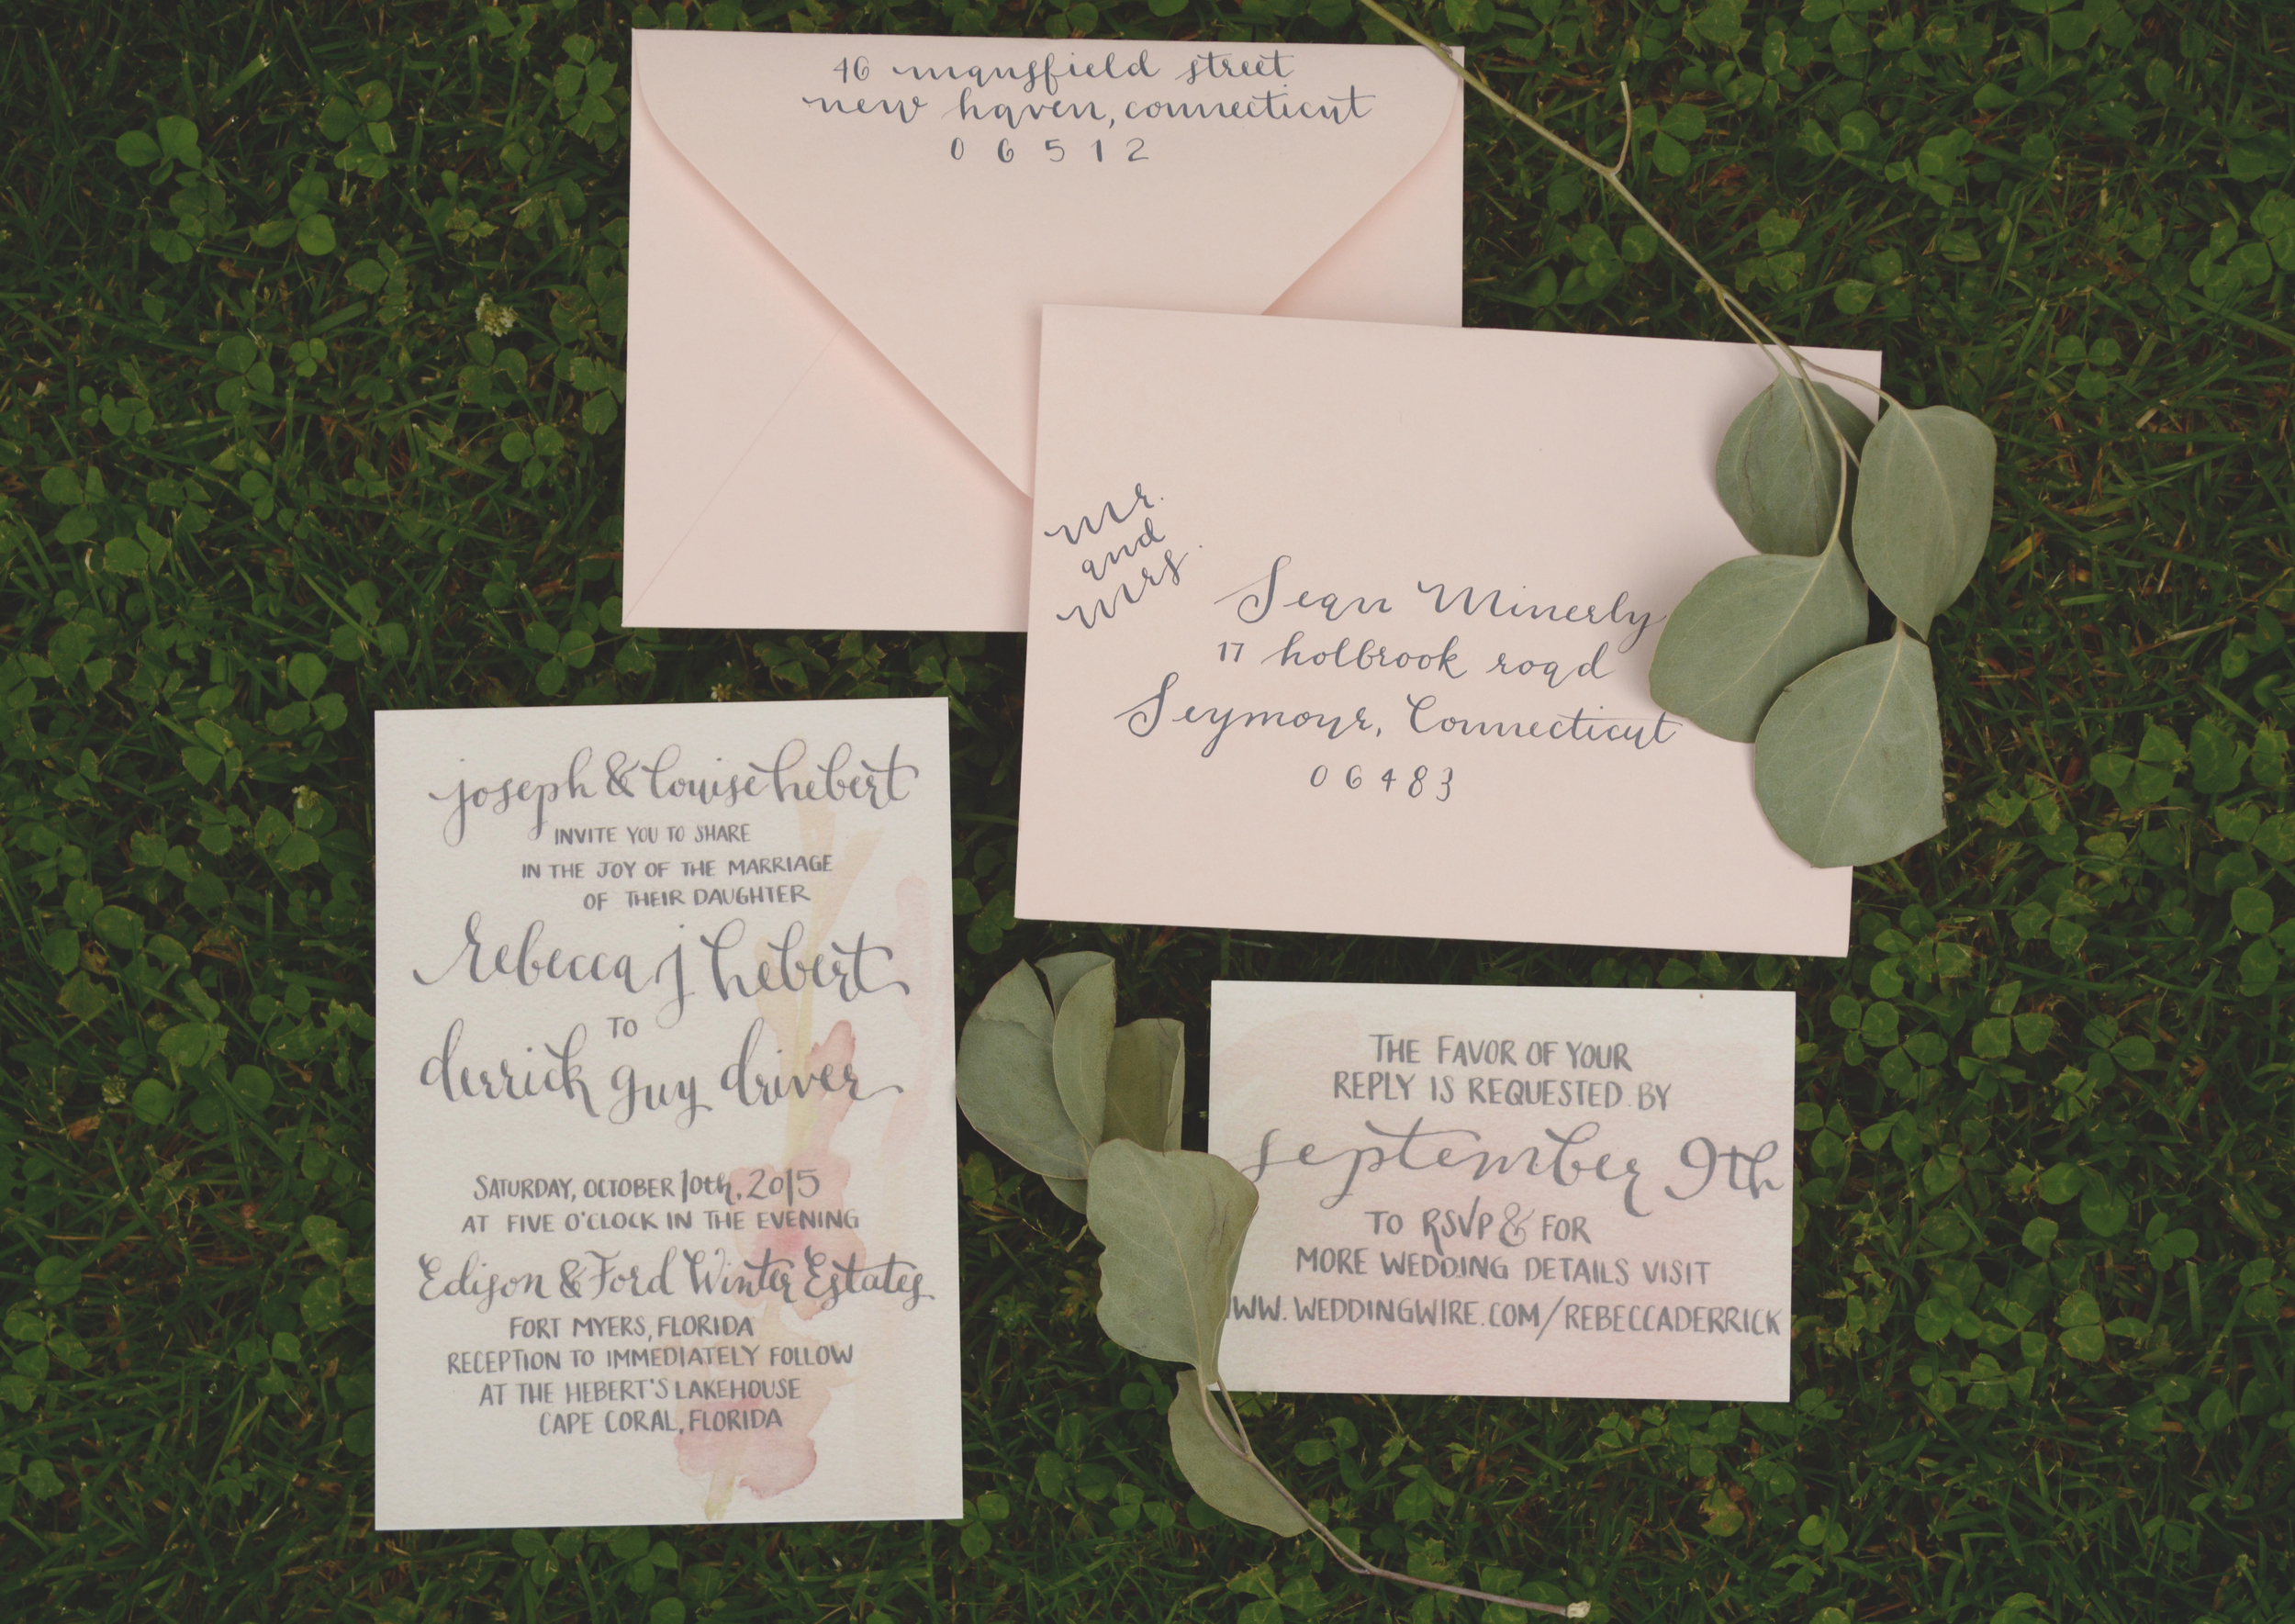 46 mansfield street
new haven, connecticut
06512
mr.
and
mrs.
Sean Minerly
17 holbrook road
Seymour, Connecticut
06483
joseph & louise hebert
INVITE YOU TO SHARE
IN THE JOY OF THE MARRIAGE
OF THEIR DAUGHTER
rebecca j hebert
TO
derrick guy driver
SATURDAY, OCTOBER 10th, 2015
AT FIVE O'CLOCK IN THE EVENING
Edison & Ford Winter Estates
FORT MYERS, FLORIDA
RECEPTION TO IMMEDIATELY FOLLOW
AT THE HEBERT'S LAKEHOUSE
CAPE CORAL, FLORIDA
THE FAVOR OF YOUR
REPLY IS REQUESTED BY
september 9th
TO RSVP & FOR
MORE WEDDING DETAILS VISIT
WW.WEDDINGWIRE.COM/REBECCADERRICK